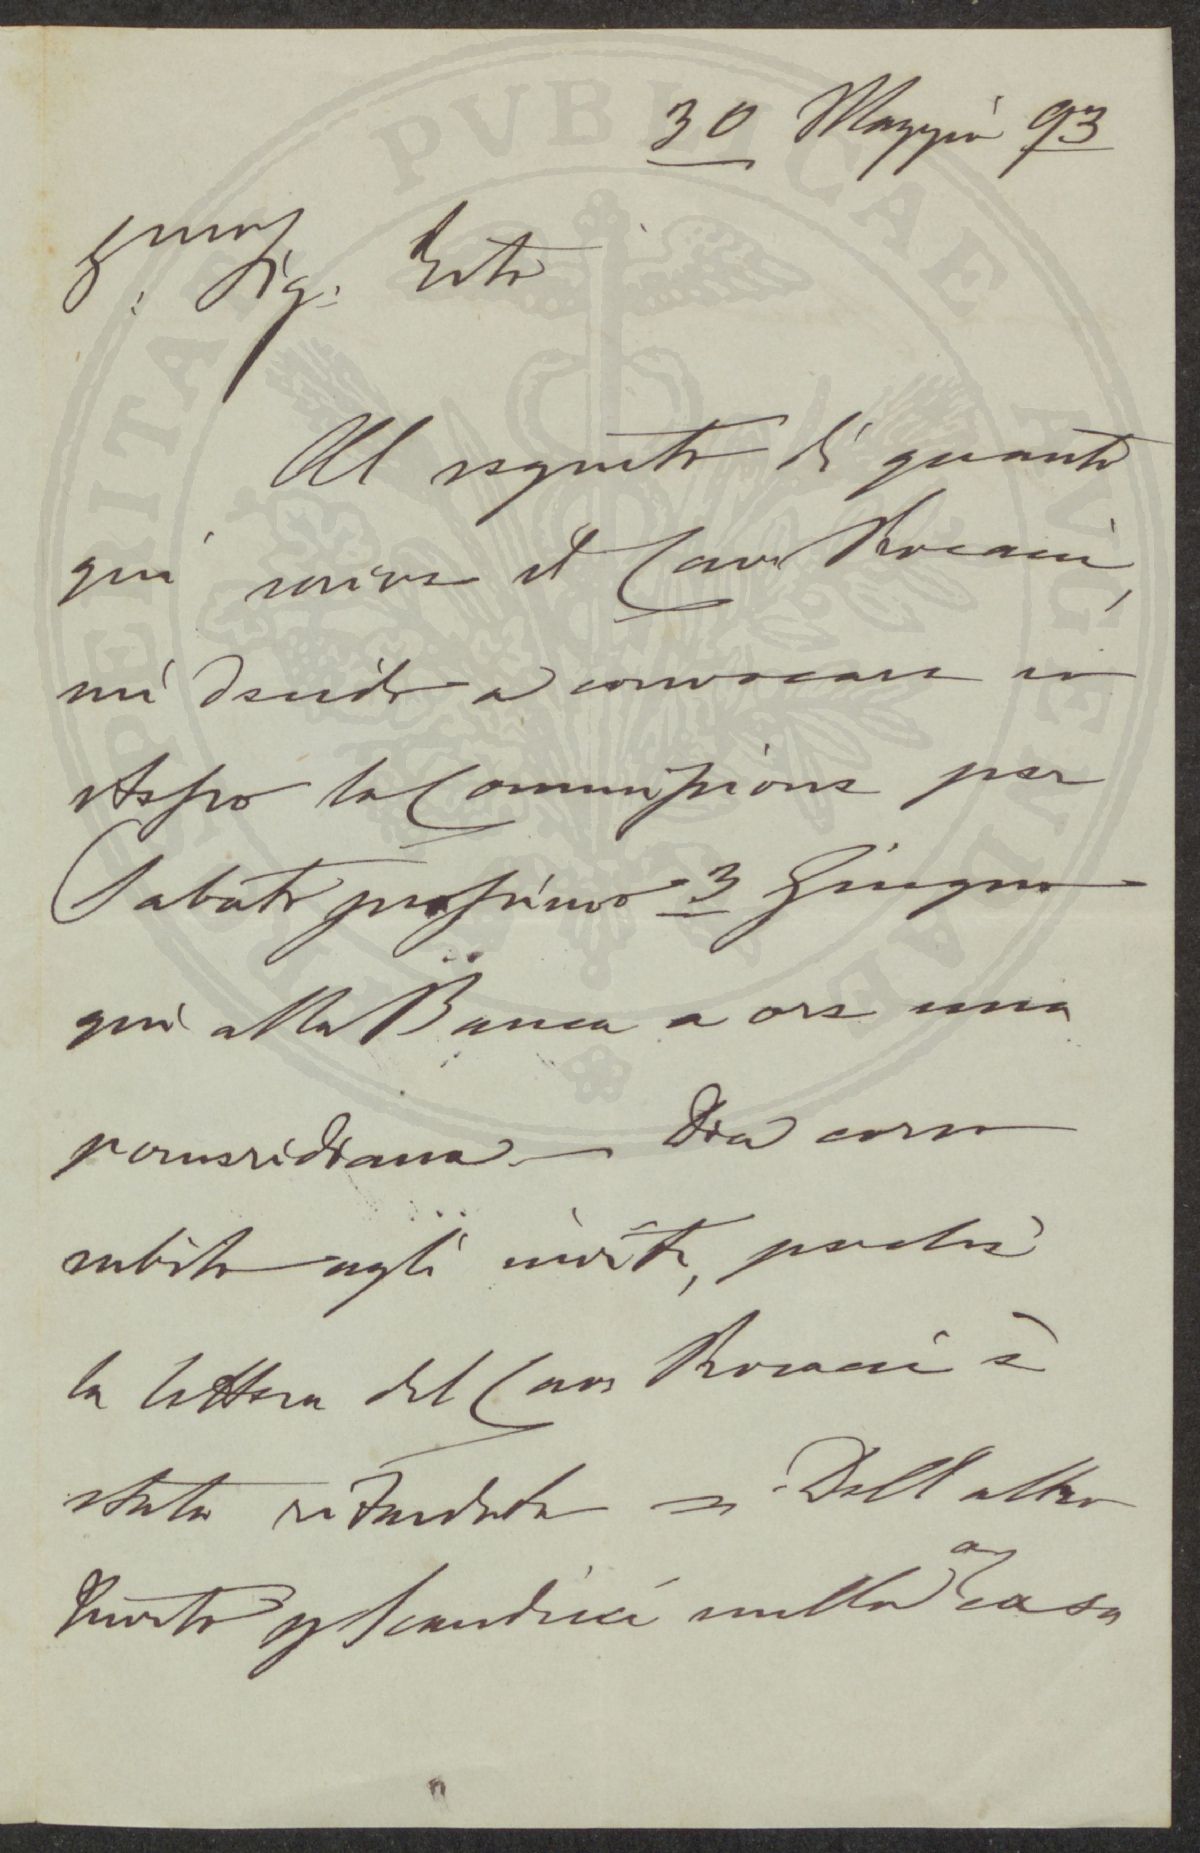 30 Maggio 93
Sig.
Al seguito di quanto
qui scrive il Cav.
mi decido a convocare io
stesso la Commissione per
Sabato prossimo 3 Giugno
qui alla Banca a ore una
pomeridiana — Dia corso
subito agli inviti, perchè
la lettera del Cav. è
stata ritardata = Dell'altro
invito p. Scandicci nulla a casa
PERITAE PVBLICAE AVGENDAE